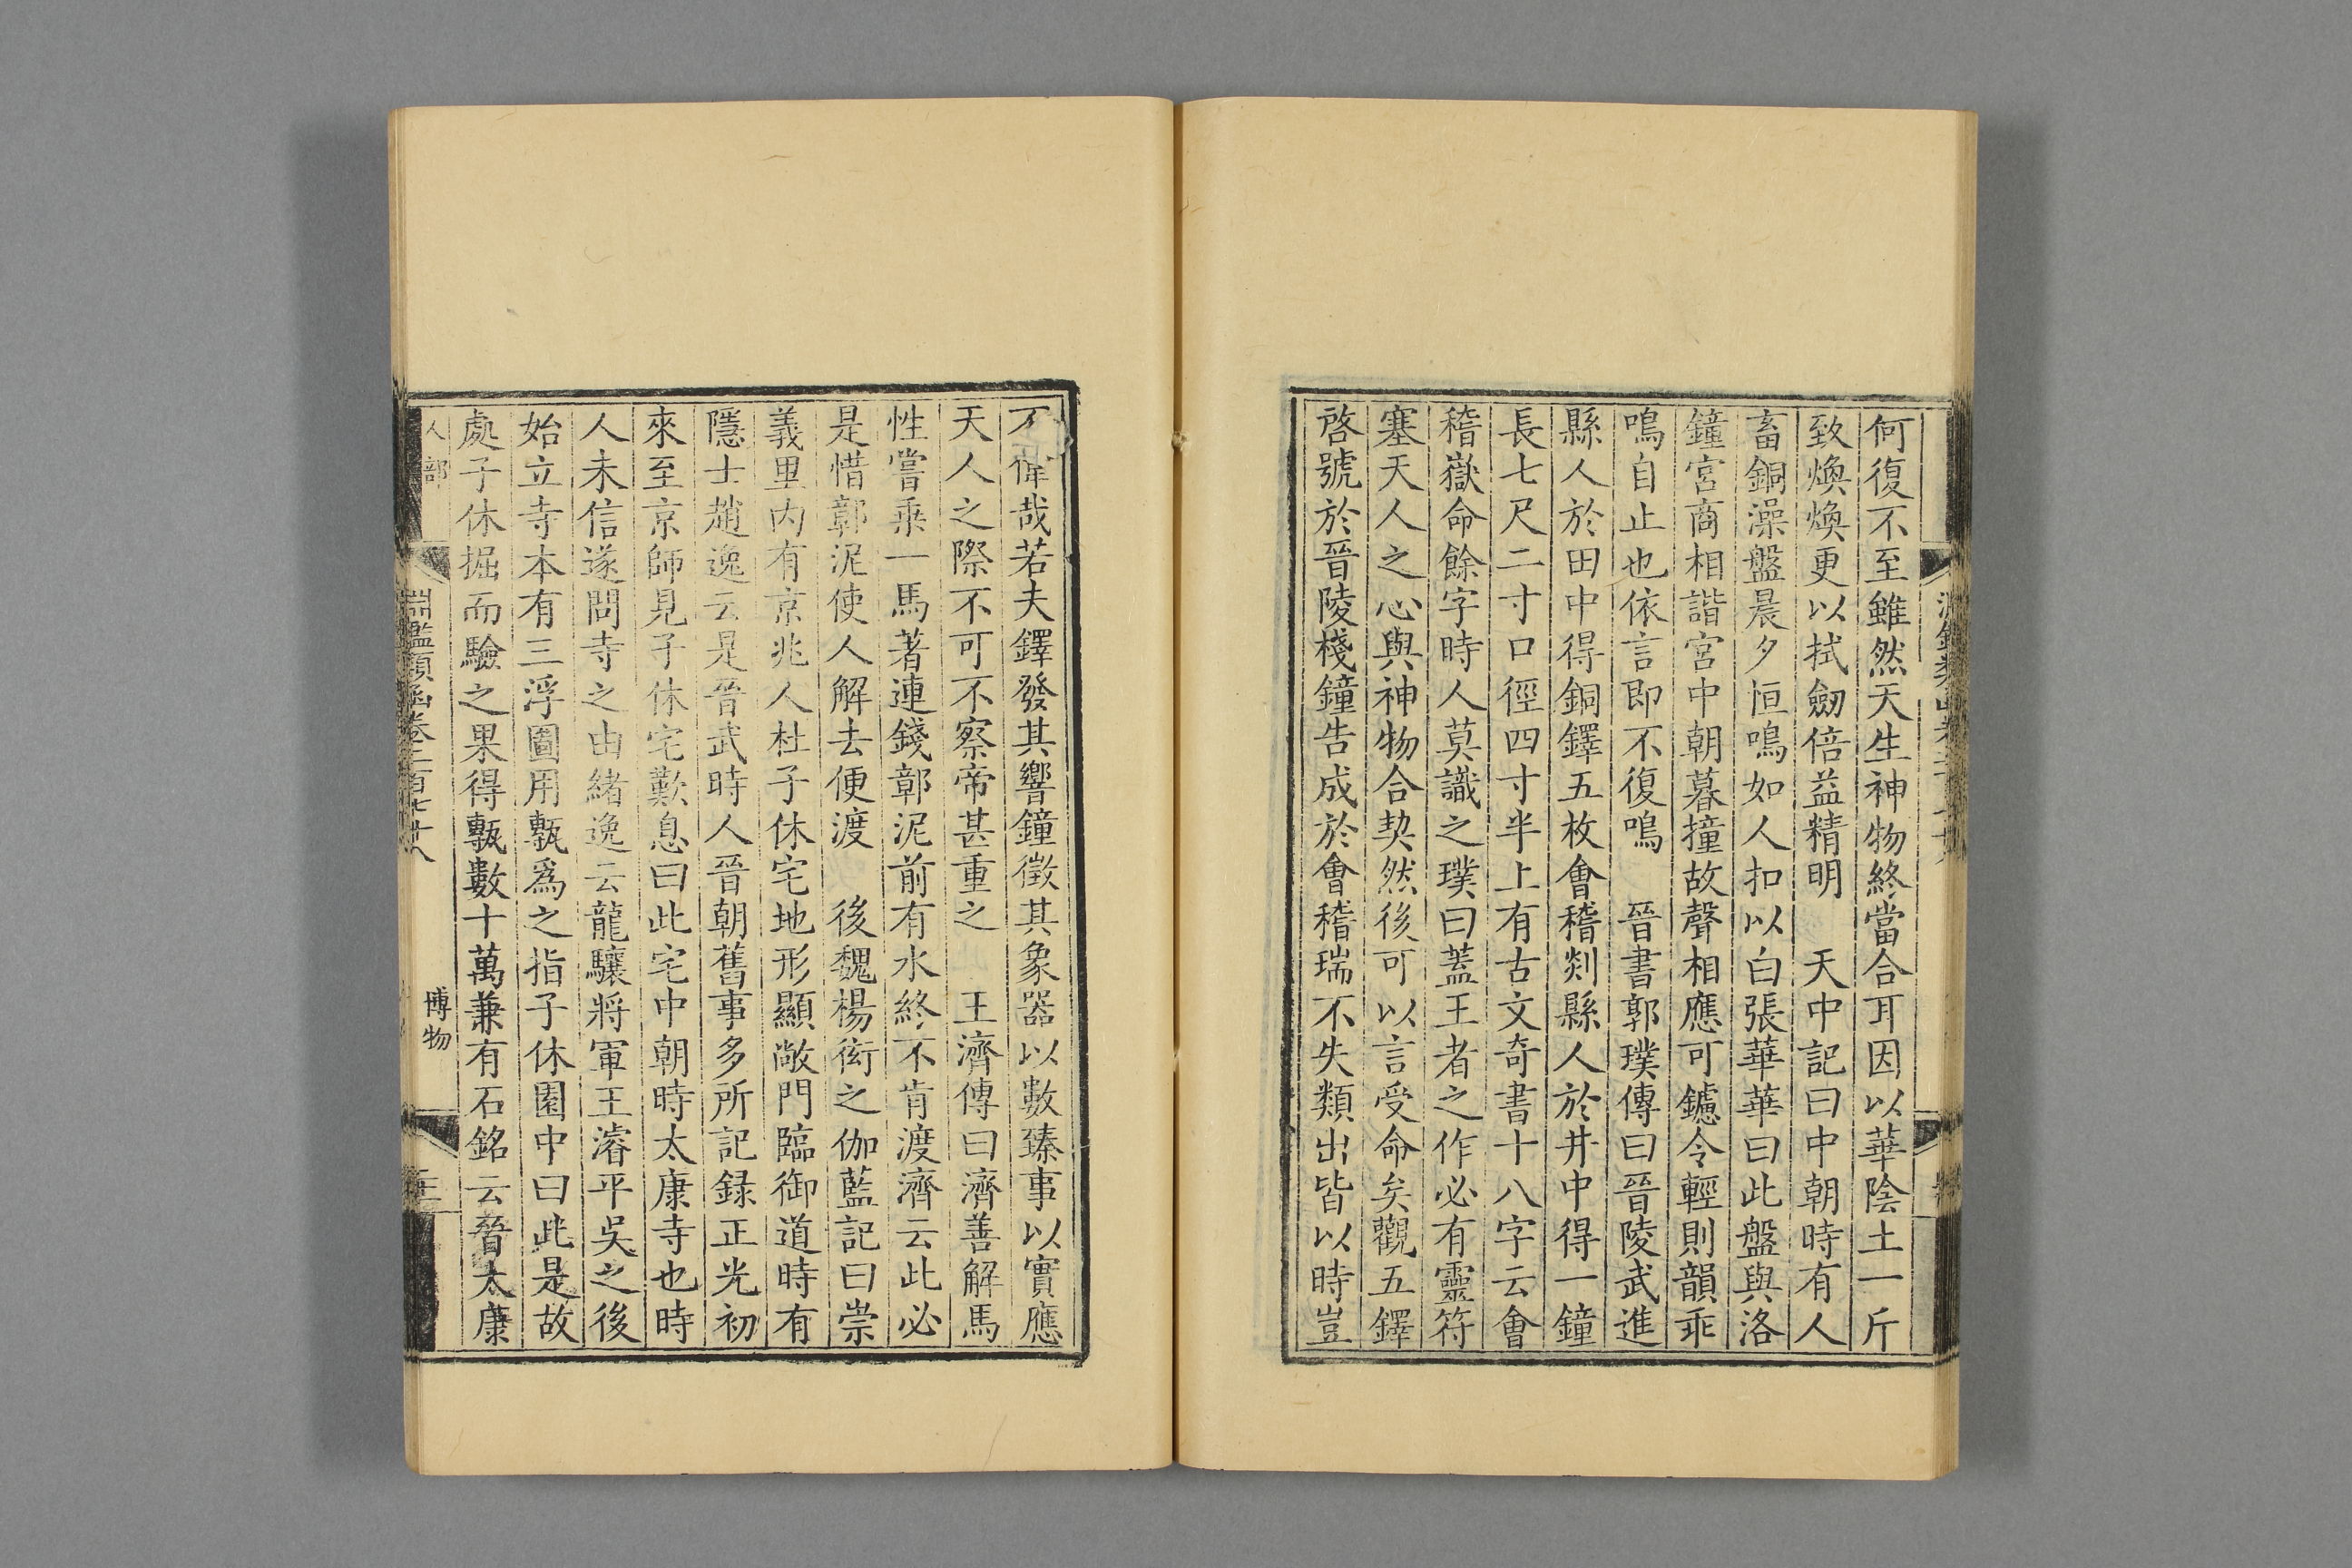 何復不至雖然天生神物終當合耳因以華陰土一斤
致煥煥更以拭劒倍益精明　天中記曰中朝時有人
畜銅澡盤晨夕恒鳴如人扣以白張華華曰此盤與洛
鐘宮商相諧宮中朝暮撞故聲相應可鑢令輕則韻乖
鳴自止也依言即不復鳴　晉書郭璞傳曰晉陵武進
縣人於田中得銅鐸五枚會稽剡縣人於井中得一鐘
長七尺二寸口徑四寸半上有古文奇書十八字云會
稽嶽命餘字時人莫識之璞曰蓋王者之作必有靈符
塞天人之心與神物合契然後可以言受命矣觀五鐸
啓號於晉陵棧鐘告成於會稽瑞不失類出皆以時豈
不偉哉若夫鐸發其響鐘徵其象器以數臻事以實應
天人之際不可不察帝甚重之　王濟傳曰濟善解馬
性嘗乘一馬著連錢鄣泥前有水終不肯渡濟云此必
是惜鄣泥使人解去便渡　後魏楊衒之伽藍記曰崇
義里内有京兆人杜子休宅地形顯敞門臨御道時有
隱士趙逸云是晉武時人晉朝舊事多所記録正光初
來至京師見子休宅歎息曰此宅中朝時太康寺也時
人未信遂問寺之由緒逸云龍驤將軍王濬平吳之後
始立寺本有三浮圖用甎爲之指子休園中曰此是故
處子休掘而驗之果得甎數十萬兼有石銘云晉太康
人部
淵鑑類函卷三百廿八
博物